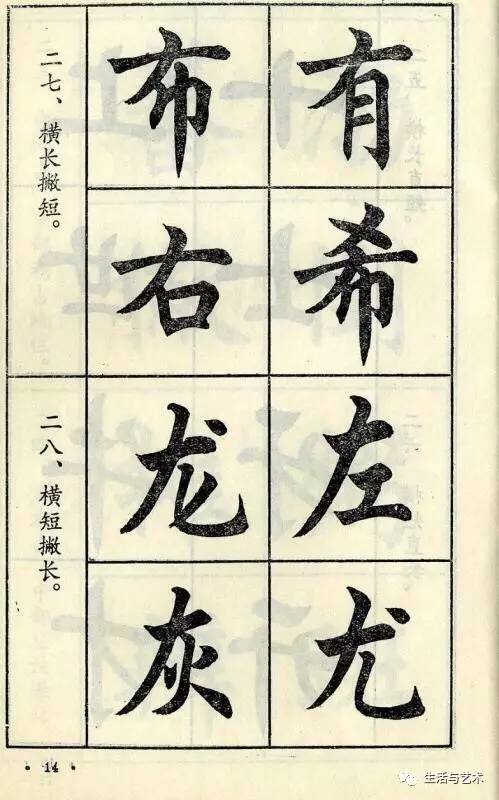 二七、横长撇短。
布 有
右 希
二八、横短撇长。
龙 左
灰 尤
• 14 •
生活与艺术